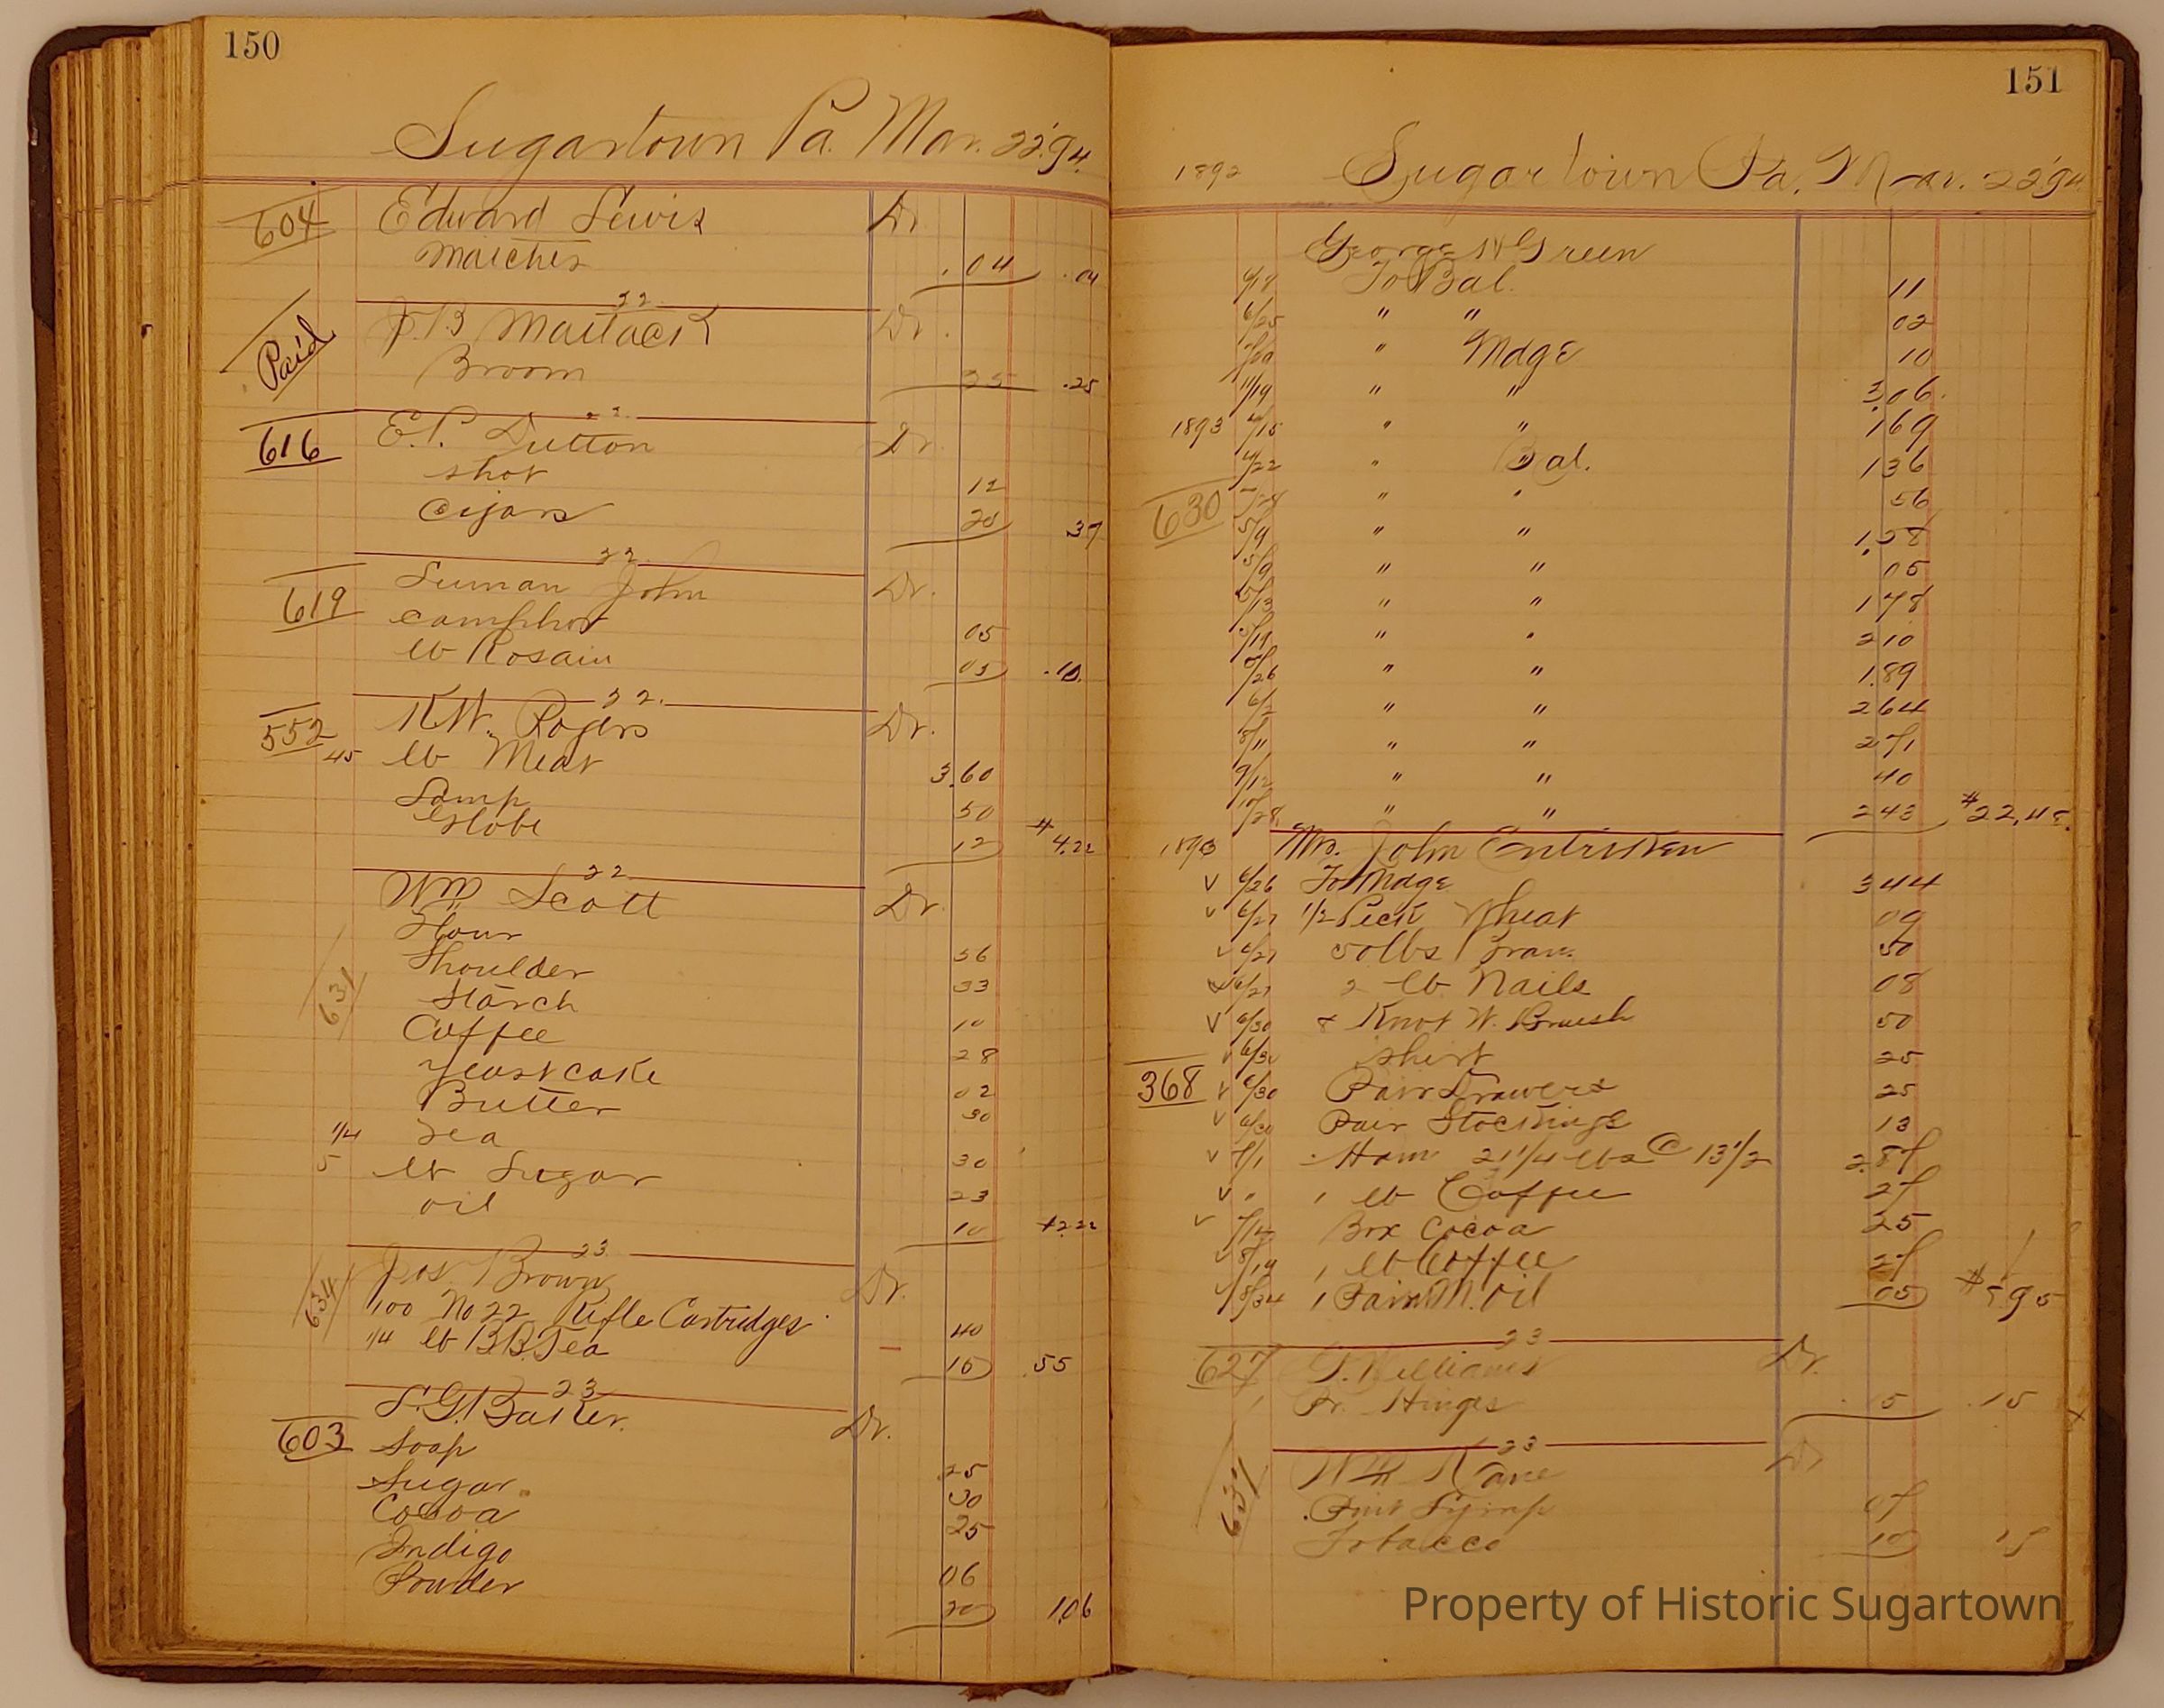 150
Sugartown Pa. Mar. 22'94.
604 Edward Lewis Dr
Matches .04 .04
22
Paid J.B. Matlack Dr.
Broom 25 .25
22
616 E.P. Dutton Dr.
shot 12
Cigars 37
22.
619 Suman John Dr.
camphor 05
lb Rosain 05 .10.
22.
552 Rogers Dr.
45 lb Meat 3.60
Lamp 50
Globe 12 $4.22
22
631 Wm Scott Dr.
Flour 56
Shoulder 33
Starch 10
Coffee 28
Yeast cake 02
Butter 30
1/4 Tea 30
5 lb Sugar 23
oil 10 $2.22
23
634 Jos. Brown Dr.
100 No 22 Rifle Cartridges 40
1/4 lb B.B. Tea 15 .55
23
S.G. Baker. Dr.
603 Soap 25
Sugar. 30
Cocoa 25
Indigo 06
Powder 20 1.06
151
1892 Sugartown Pa. Mar. 22'94
George Green
To Bal. 11
6/25 " " 02
" Mdge 10
11/19 " " 3.06.
1893 4/15 " " 1.69
4/22 " Bal. 136
630 " " 56
5/9 " " 1.58
5/9 " " 05
5/13 " " 178
5/19 " " 210
5/26 " " 1.89
6/2 " " 264
8/11 " " 271
9/12 " " 40
10/28 " " 243 $22,45.
1893 Mrs. John Entriken
V 6/26 To Mdge 344
v 6/27 1/2 Peck Wheat 09
v 6/27 50 lbs Bran. 50
v 6/27 2 lb Nails 08
V 6/30 Knot W. Brush 50
v 6/30 shirt 25
368 v 6/30 Pair Drawers 25
v 6/30 Pair Stockings 13
v 7/1 Ham 21 1/4 lbs @ 13 1/2 2.87
v " 1 lb Coffee 27
v 7/12 Box Cocoa 25
v 8/19 1 lb Coffee 27
v 1 M. Oil 05
23
627 Williams Dr.
Pr. Hinges 15 .15
23
631 Wm Kane Dr
Pint Syrup 07
Tobacco 10 17
Property of Historic Sugartown